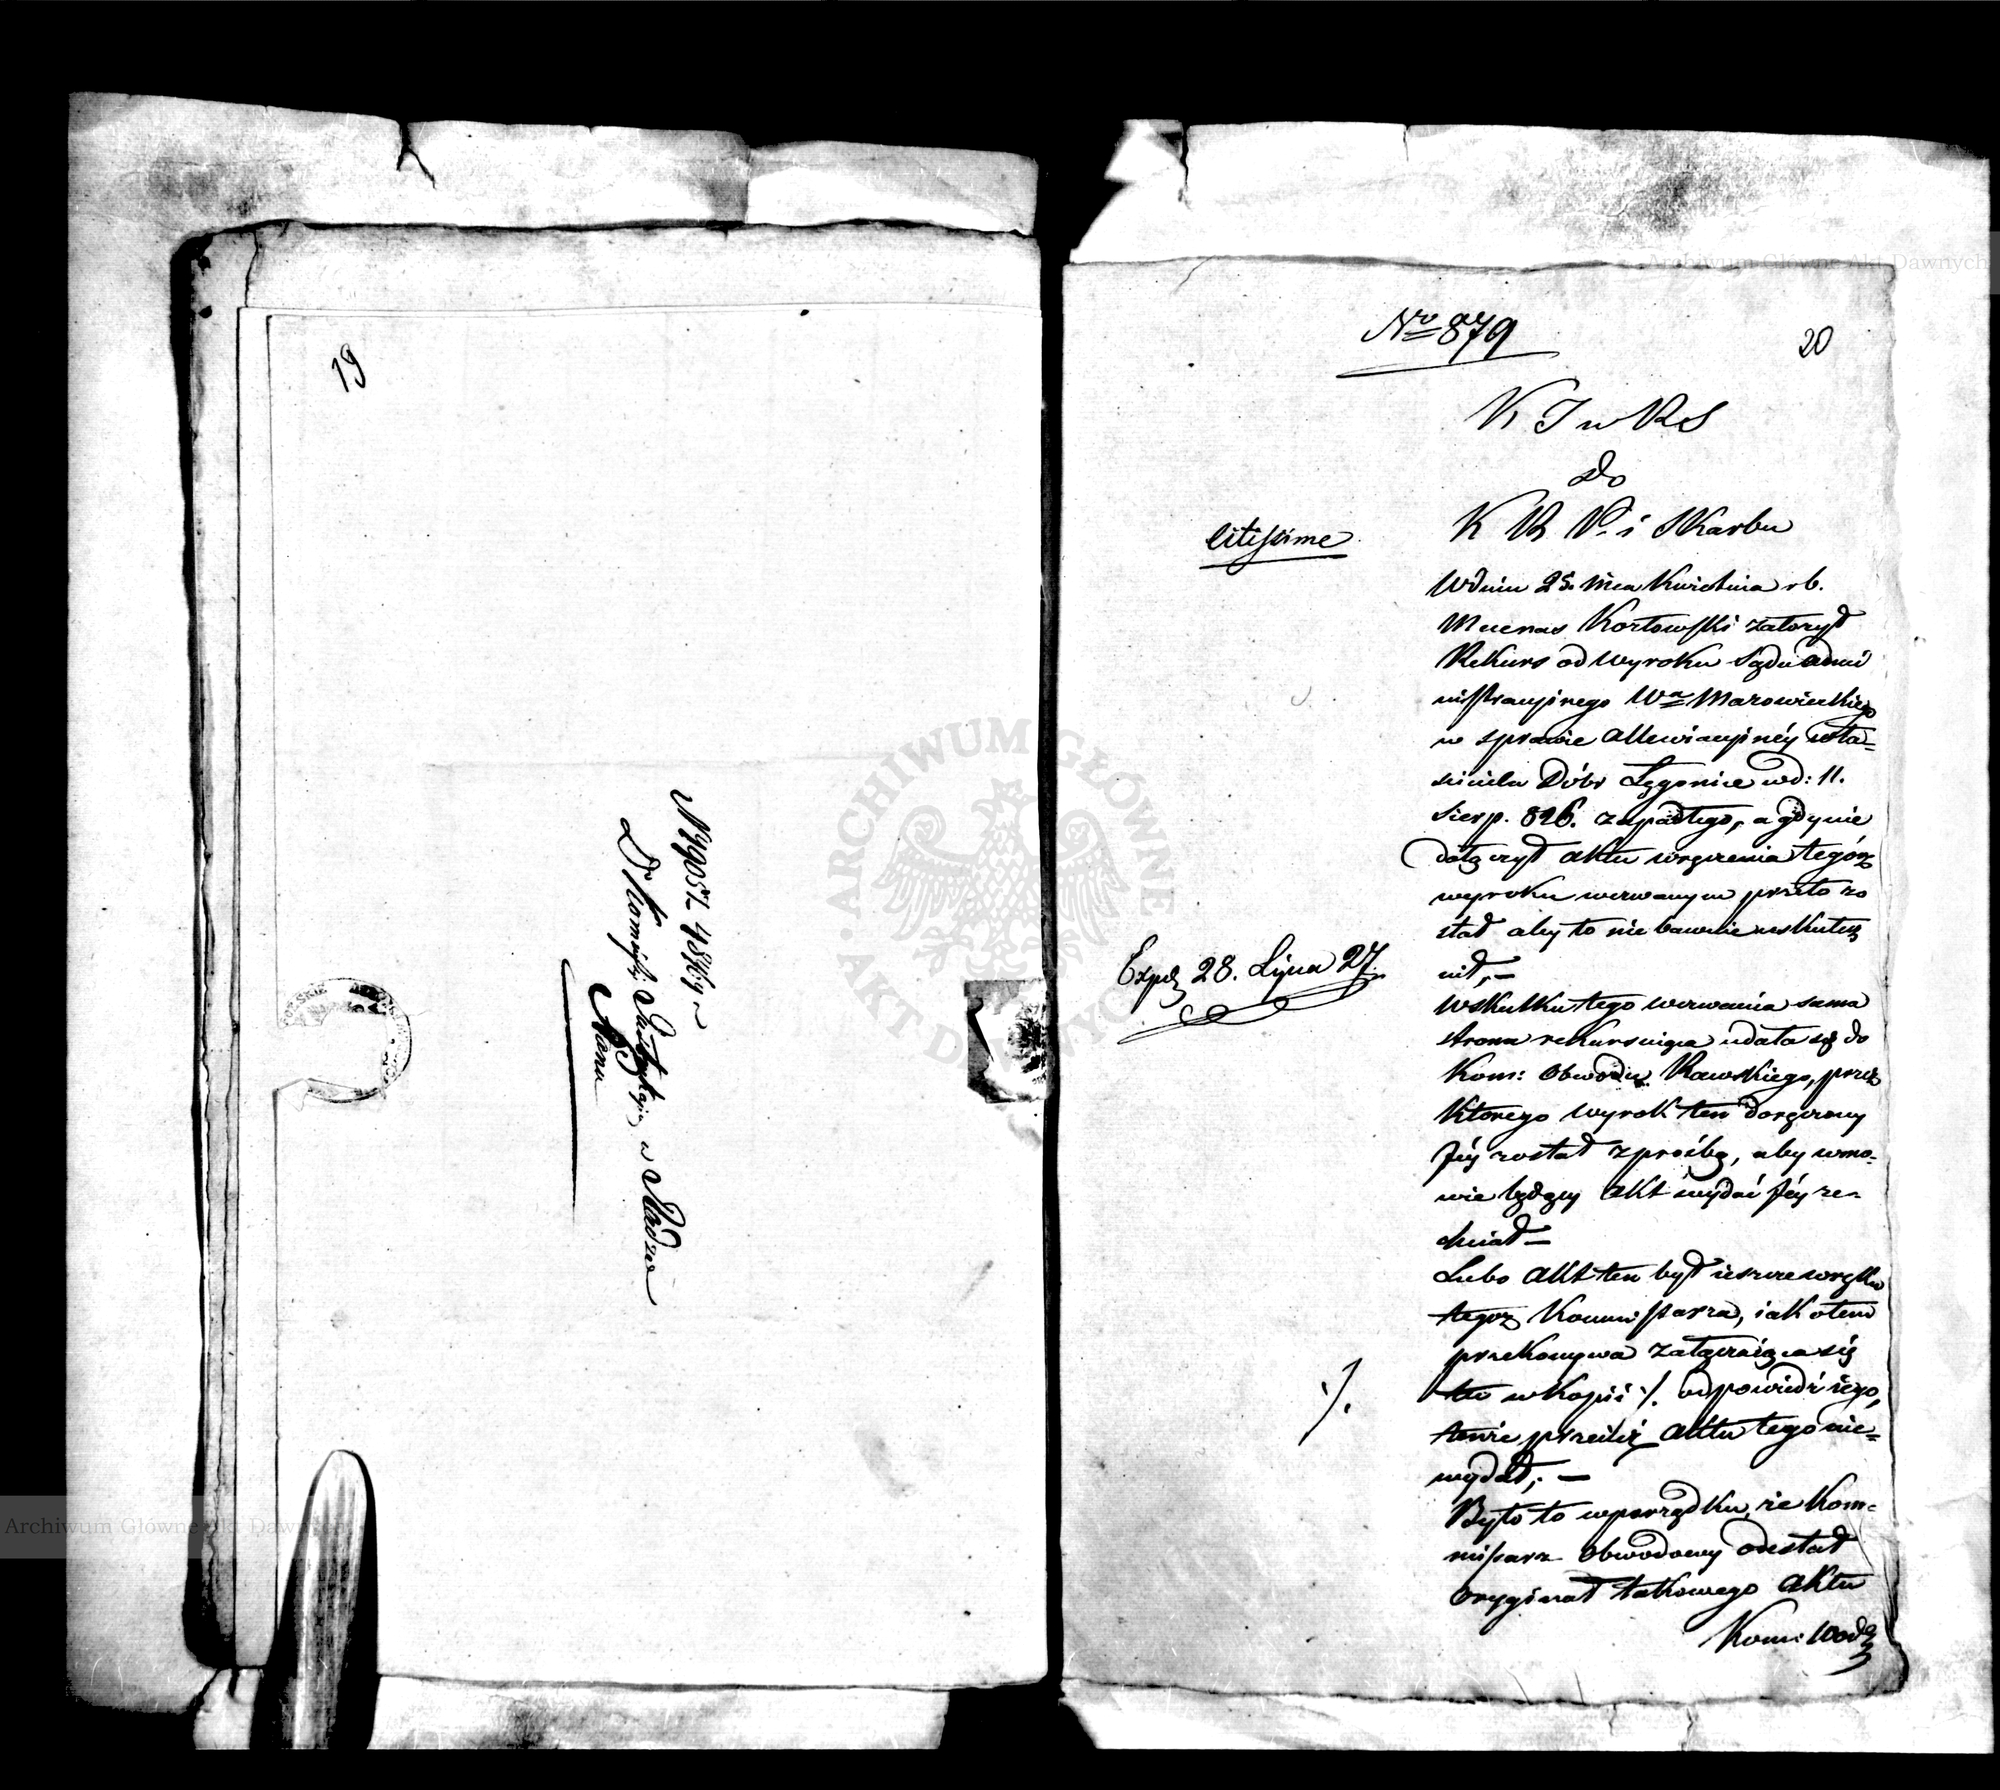 19
Do Kommissyi
w
N 879
20
K J w R S
do
K R P. i Skarbu
citissime
W dniu 25. mca Kwietnia rb.
Mecenas Kozłowski założył
Rekurs od wyroku Sądu admi
nistracyjnego Wa Mazowieckiego
w sprawie allewiacyjnéy wła=
ściciela Dóbr Łęgonice w d: 11.
Sierp. 826. zapadłego, a gdy nie
dołączył aktu wręczenia tegóż
wyroku wezwanym przeto zo
stał aby to nie bawnie uskutecz
nił, —
Expd 28. Lipca 27.
W skutku tego wezwania sama
strona rekursuiąca udała się do
Kom: Obwodu Rawskiego, przez
którego wyrok ten doręczony
Jéy został z prośbą, aby w mo=
wie będący akt wydać Jéy ze=
chciał —
Lubo akt ten był ieszcze w ręku
tegoż Kommissarza, iak o tem
przekonywa załączaiąca się
tu w kopii ·/. odpowiedź iego,
·/.
tenże przecież aktu tego nie=
wydał; —
Było to w porządku, że Kom=
missarz Obwodowy odesłał
oryginał takowego aktu
Kom: Wodz
ARCHIWUM GŁÓWNE AKT DAWNYCH
Archiwum Główne Akt Dawnych
Archiwum Główne Akt Dawnych